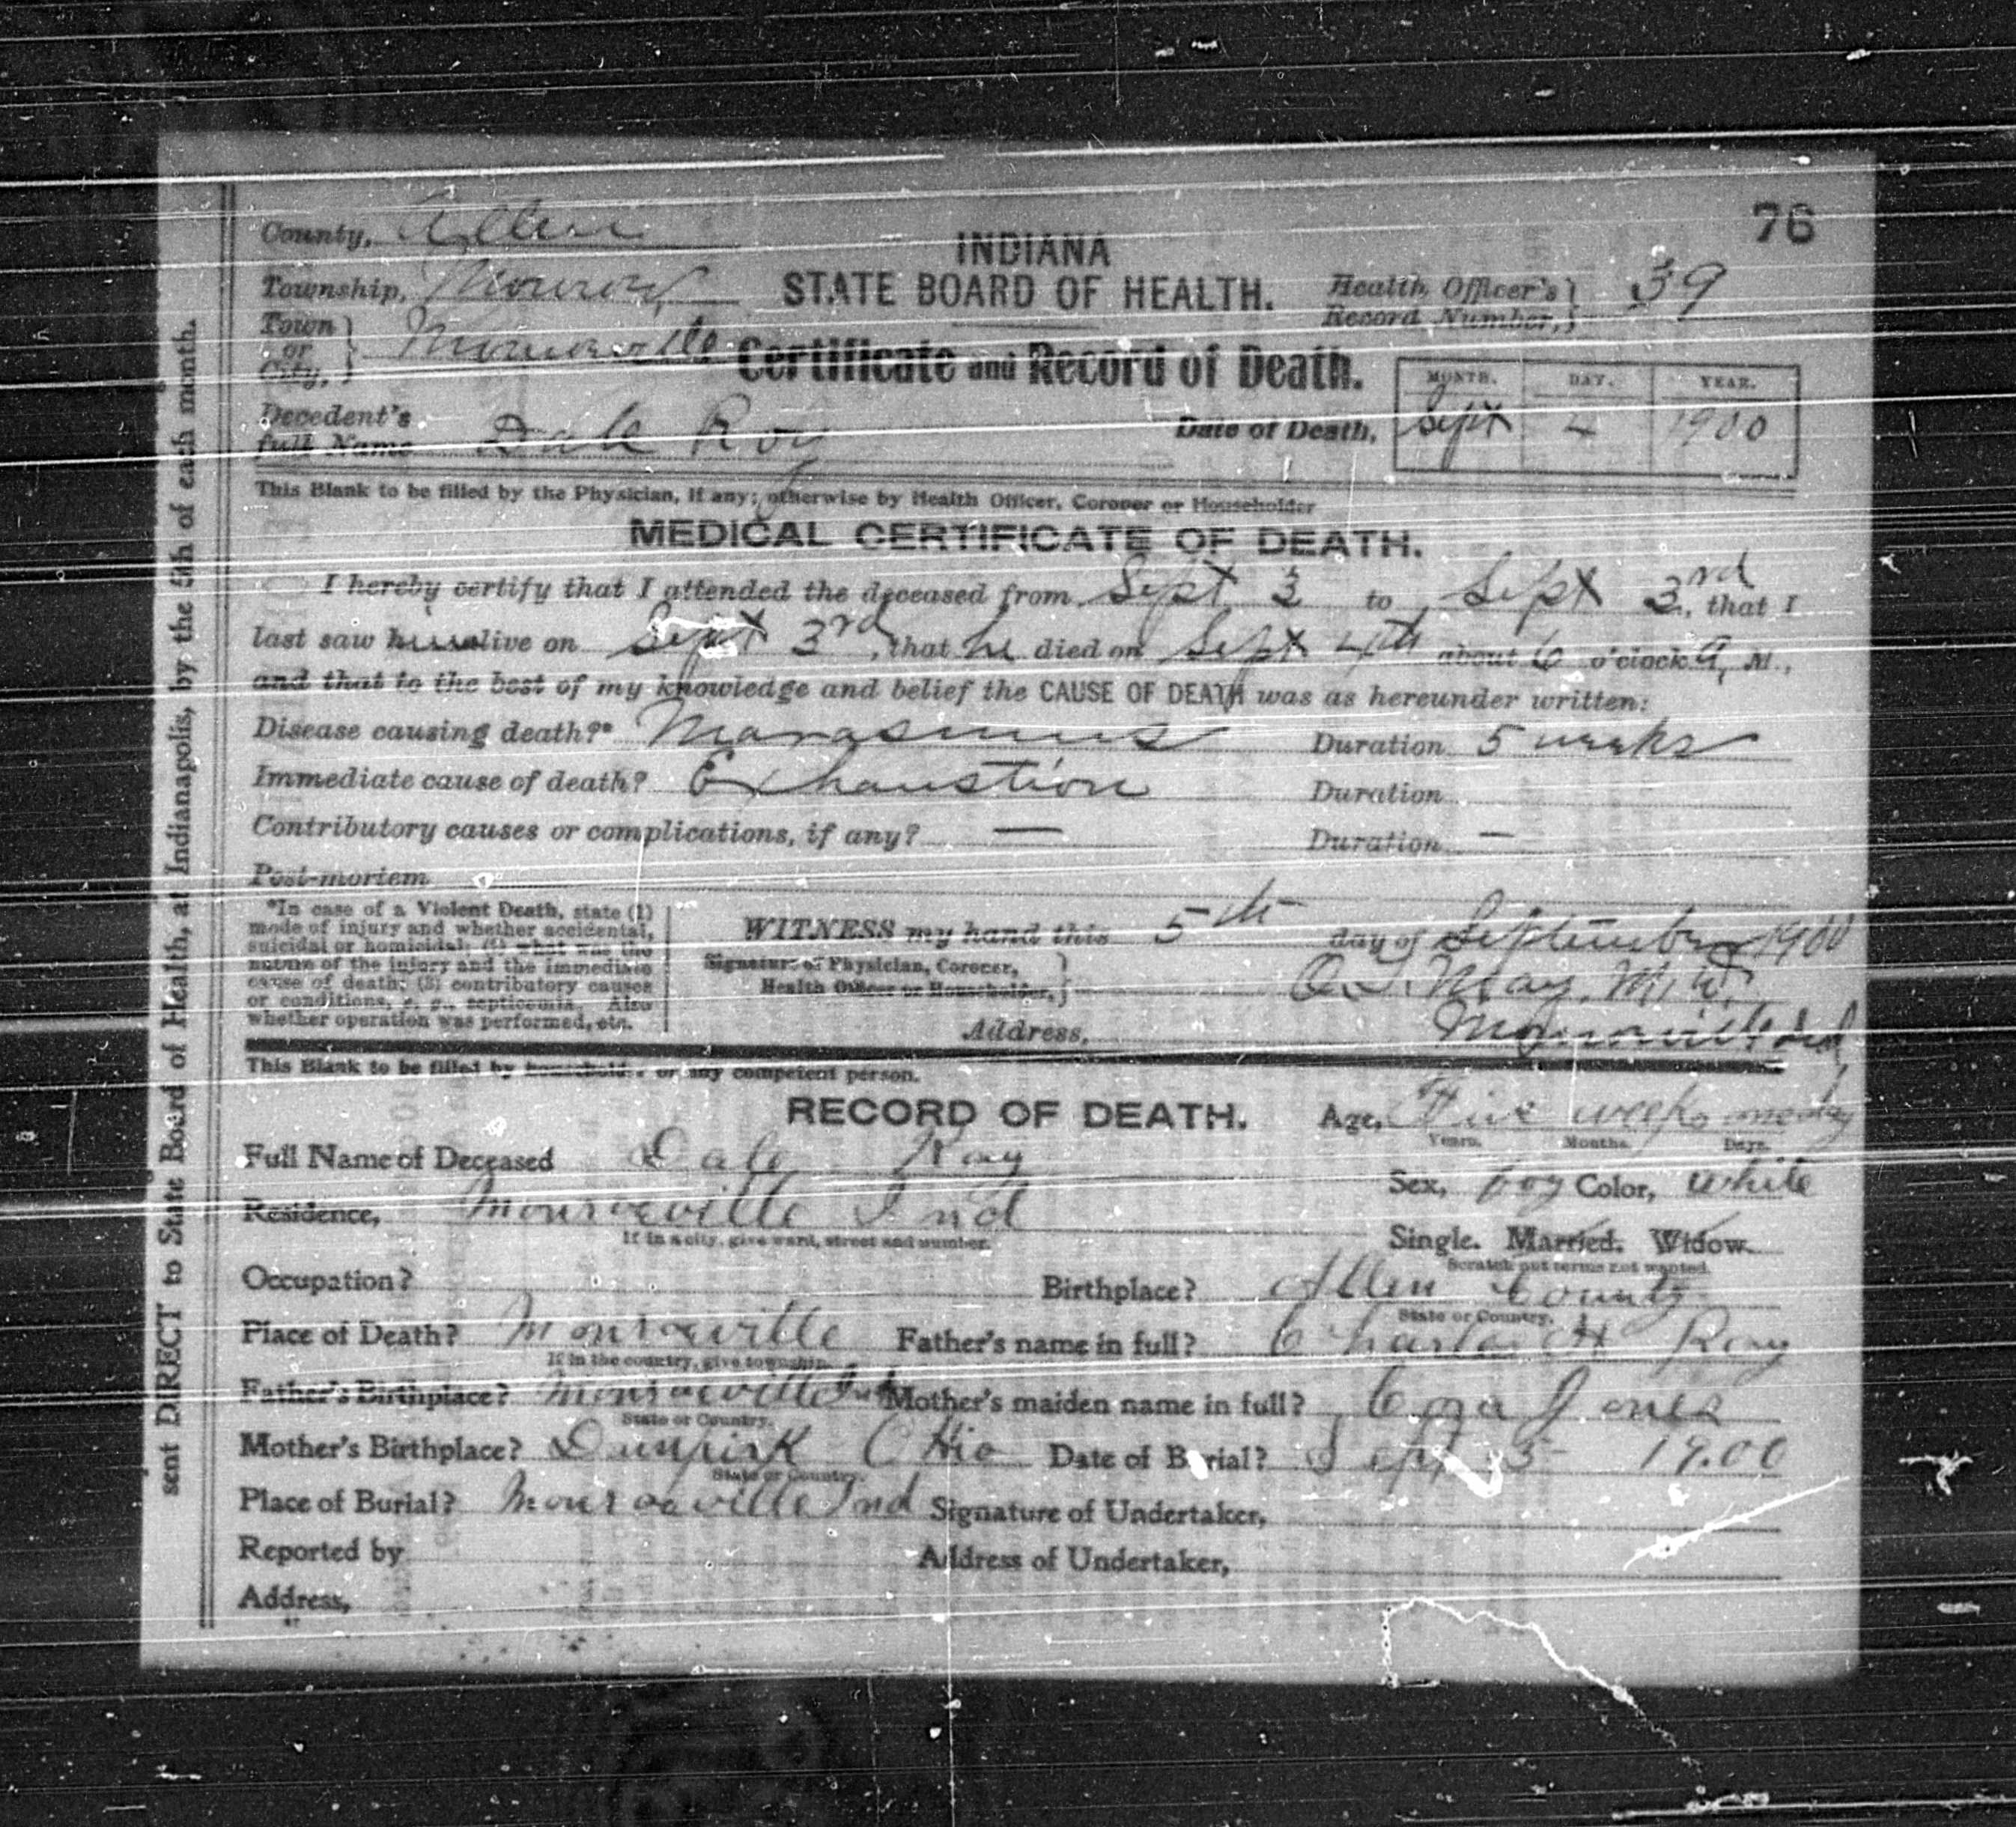 76
County, Allen
INDIANA
Township, Monroe
STATE BOARD OF HEALTH.
Health Officer's Record Number, 39
Town or City, Monroeville
Certificate and Record of Death.
MONTH. DAY. YEAR.
Decedent's full Name Dale Roy
Date of Death, Sept 4 1900
This Blank to be filled by the Physician, if any; otherwise by Health Officer, Coroner or Householder
MEDICAL CERTIFICATE OF DEATH.
I hereby certify that I attended the deceased from Sept 3 to Sept 3rd, that I
last saw him alive on Sept 3rd, that he died on Sept 4th about 6 o'clock A, M.,
and that to the best of my knowledge and belief the CAUSE OF DEATH was as hereunder written:
Disease causing death?* Marasmus Duration 5 weeks
Immediate cause of death? Exhaustion Duration
Contributory causes or complications, if any? — Duration —
Post-mortem
*In case of a Violent Death, state (1)
mode of injury and whether accidental,
suicidal or homicidal; (2) what was the
nature of the injury and the immediate
cause of death; (3) contributory causes
or conditions, e. g., septicemia. Also
whether operation was performed, etc.
WITNESS my hand this 5th day of September 1900
Signature of Physician, Coroner,
Health Officer or Householder, May, M.D.
Address, Monroeville Ind
This Blank to be filled by householder or any competent person.
RECORD OF DEATH.
Age, Five weeks
Years. Months. Days.
Full Name of Deceased Dale Ray
Sex, boy Color, white
Residence, Monroeville Ind
If in a city, give ward, street and number.
Single. Married. Widow.
Scratch out terms not wanted.
Occupation? Birthplace? Allen County
State or Country.
Place of Death? Monroeville Father's name in full? Charles H Ray
If in the country, give township.
Father's Birthplace? Monroeville Ind Mother's maiden name in full? Cora Jones
State or Country.
Mother's Birthplace? Dunpirk Ohio Date of Burial? Sept 5 19.00
State or Country.
Place of Burial? Monroeville Ind Signature of Undertaker,
Reported by Address of Undertaker,
Address,
sent DIRECT to State Board of Health, at Indianapolis, by the 5th of each month.